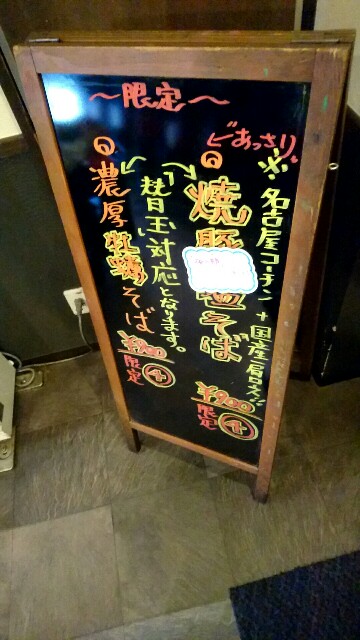 ～限定～
←あっさり
※名古屋コーチン+国産
焼豚塩そば
¥900
限定④
替玉対応となります。
濃厚牡蠣そば
¥900
限定④